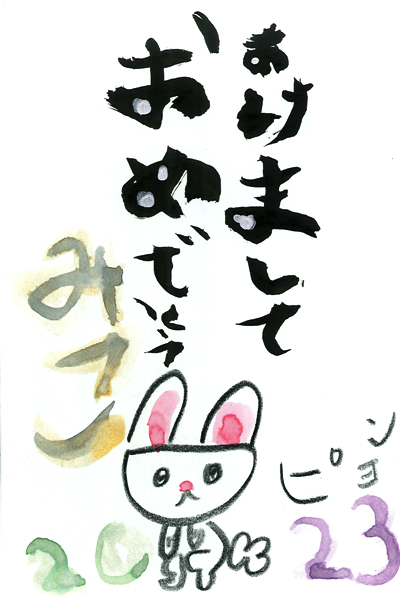 あけまして
おめでとう
ピョン
2023